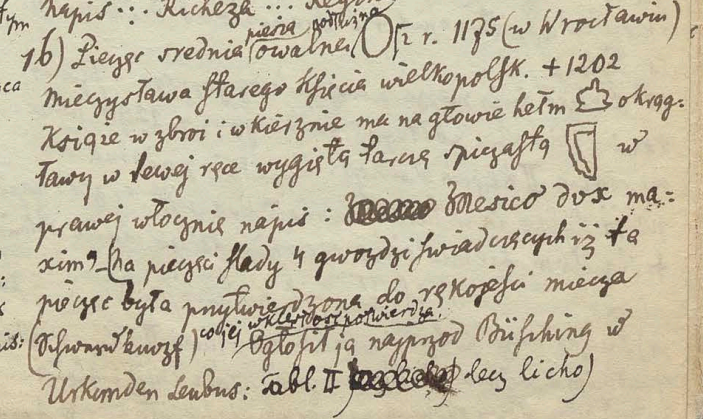 napis : . . Richeza . . .
16) Pieczęć średnia piesza podłużna owalna z r. 1175 (w Wrocławiu)
Mieczysława Starego Księcia wielkopolsk. + 1202
Książe w zbroi i w kierznie ma na głowie hełm okrąg-
ławy w lewej ręce wygiętą tarczę spiczastą w
prawej włocznię napis : Mesico dux ma-
xim9 (Na pieczęci ślady 4 gwoździ świadczących iż ta
pieczęć była przytwierdzona do rękojeści miecza
(Schwertknopf) co jej wklęsłość potwierdza. Ogłosił ją najprzod Büsching w
Urkunden Leubus: Tabl. II lecz licho)